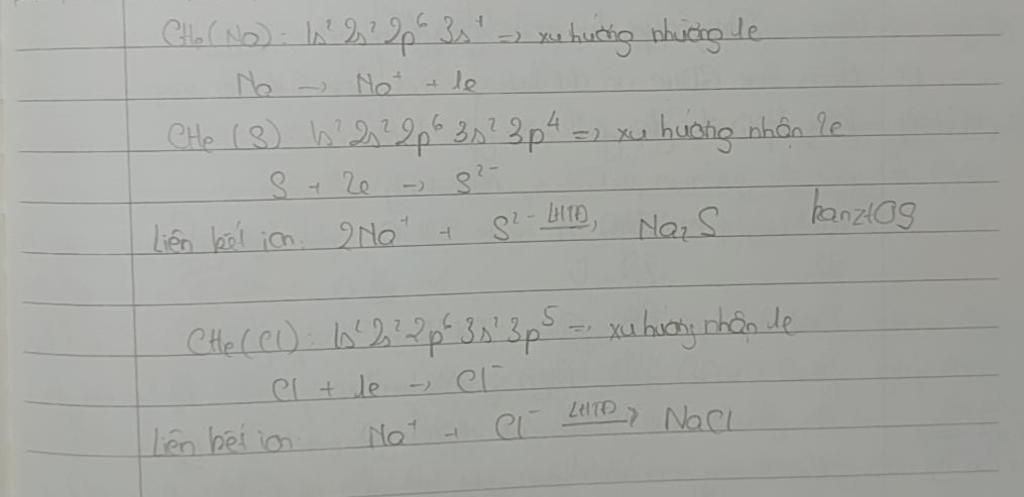 CHe (Na): 1s² 2s² 2p⁶ 3s¹ => xu hướng nhường 1e
Na -> Na⁺ + 1e
CHe (S) 1s² 2s² 2p⁶ 3s² 3p⁴ => xu hướng nhận 2e
S + 2e -> S²⁻
liên kết ion: 2Na⁺ + S²⁻ LHTĐ→ Na₂S hanzt09
CHe (Cl): 1s² 2s² 2p⁶ 3s² 3p⁵ => xu hướng nhận 1e
Cl + 1e -> Cl⁻
liên kết ion: Na⁺ + Cl⁻ LHTĐ→ NaCl